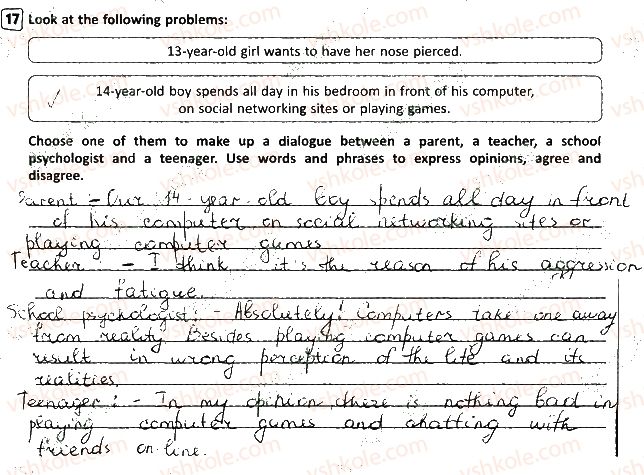 17 Look at the following problems:
13-year-old girl wants to have her nose pierced.
14-year-old boy spends all day in his bedroom in front of his computer,
on social networking sites or playing games.
Choose one of them to make up a dialogue between a parent, a teacher, a school
psychologist and a teenager. Use words and phrases to express opinions, agree and
disagree.
Parent – Our 14-year-old boy spends all day in front
of his computer on social networking sites or
playing computer games
Teacher – I think it's the reason of his aggression
and fatigue.
School psychologist: - Absolutely! Computers take one away
from reality Besides playing computer games can
result in wrong perception of the life and its
realities.
Teenager: - In my opinion there is nothing bad in
playing computer games and chatting with
friends on-line.
vshkole.com